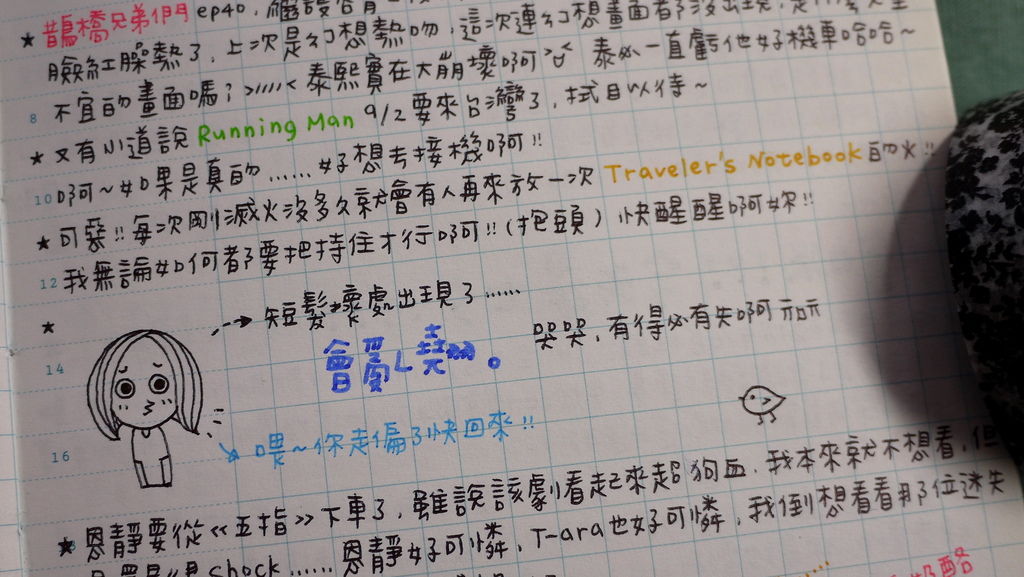 ★ 鵲橋兄弟們 ep40,
臉紅臊熱了,上次是幻想熱吻,這次連幻想畫面都沒出現,是
8 不宜的畫面嗎? >/////< 泰熙實在太崩壞啊 泰 一直虧他好機車哈哈~
★ 又有小道說 Running Man 9/2 要來台灣了,拭目以待~
10 啊~如果是真的......好想去接機啊!!
★ 可惡!!每次剛滅火沒多久就會有人再來放一次 Traveler's Notebook 的火!!
12 我無論如何都要把持住才行啊!!(抱頭) 快醒醒啊妳!!
★ 短髮壞處出現了......
14 會憂L翹。
哭哭,有得必有失啊
16 喂~你走偏了快回來!!
★ 恩靜要從《五指》下車了,雖說該劇看起來超狗血,我本來就不想看,但
shock......恩靜好可憐,T-ara也好可憐,我倒想看看那位迷失
酪